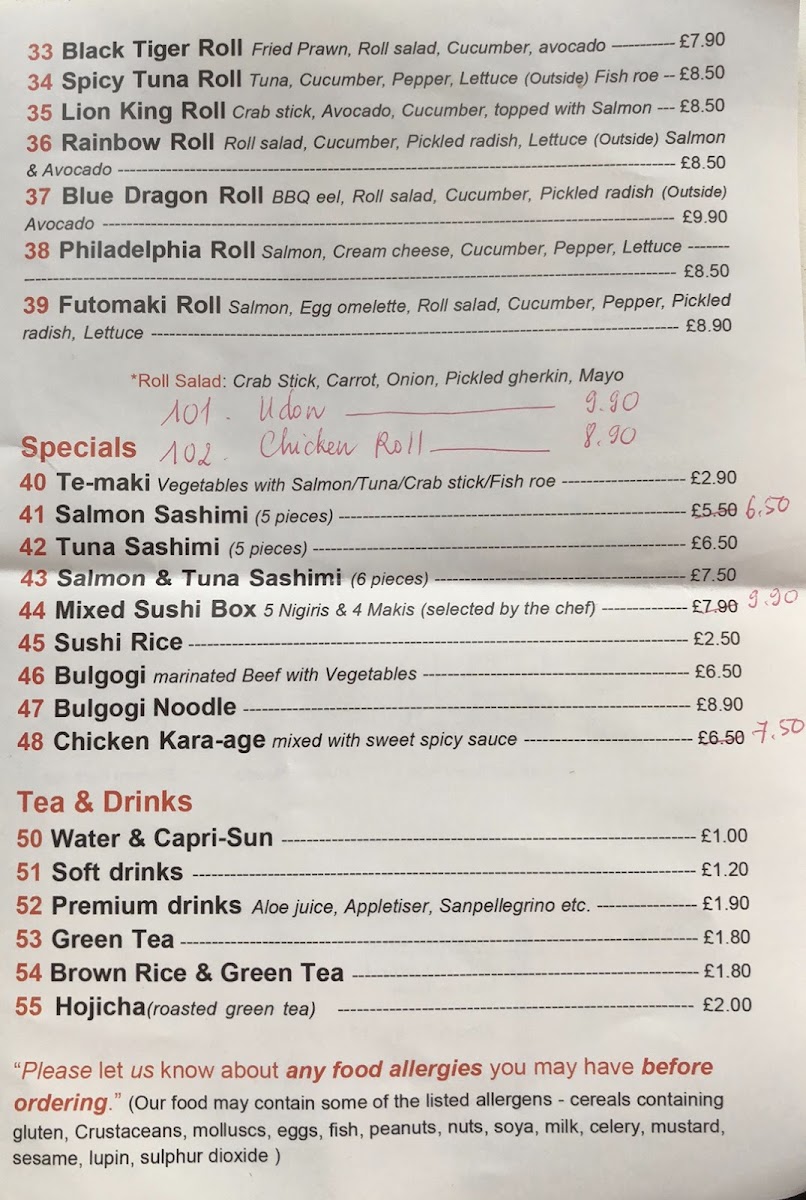 33 Black Tiger Roll Fried Prawn, Roll salad, Cucumber, avocado ----------- £7.90
34 Spicy Tuna Roll Tuna, Cucumber, Pepper, Lettuce (Outside) Fish roe -- £8.50
35 Lion King Roll Crab stick, Avocado, Cucumber, topped with Salmon --- £8.50
36 Rainbow Roll Roll salad, Cucumber, Pickled radish, Lettuce (Outside) Salmon
& Avocado ----------- £8.50
37 Blue Dragon Roll BBQ eel, Roll salad, Cucumber, Pickled radish (Outside)
Avocado ----------- £9.90
38 Philadelphia Roll Salmon, Cream cheese, Cucumber, Pepper, Lettuce -------
----------- £8.50
39 Futomaki Roll Salmon, Egg omelette, Roll salad, Cucumber, Pepper, Pickled
radish, Lettuce ----------- £8.90
*Roll Salad: Crab Stick, Carrot, Onion, Pickled gherkin, Mayo
101. Udon ——— 9.90
102. Chicken Roll ——— 8.90
Specials
40 Te-maki Vegetables with Salmon/Tuna/Crab stick/Fish roe ----------- £2.90
41 Salmon Sashimi (5 pieces) ----------- £5.50 6.50
42 Tuna Sashimi (5 pieces) ----------- £6.50
43 Salmon & Tuna Sashimi (6 pieces) ----------- £7.50
44 Mixed Sushi Box 5 Nigiris & 4 Makis (selected by the chef) ----------- £7.90 9.90
45 Sushi Rice ----------- £2.50
46 Bulgogi marinated Beef with Vegetables ----------- £6.50
47 Bulgogi Noodle ----------- £8.90
48 Chicken Kara-age mixed with sweet spicy sauce ----------- £6.50 7.50
Tea & Drinks
50 Water & Capri-Sun ----------- £1.00
51 Soft drinks ----------- £1.20
52 Premium drinks Aloe juice, Appletiser, Sanpellegrino etc. ----------- £1.90
53 Green Tea ----------- £1.80
54 Brown Rice & Green Tea ----------- £1.80
55 Hojicha(roasted green tea) ----------- £2.00
“Please let us know about any food allergies you may have before
ordering.” (Our food may contain some of the listed allergens - cereals containing
gluten, Crustaceans, molluscs, eggs, fish, peanuts, nuts, soya, milk, celery, mustard,
sesame, lupin, sulphur dioxide )